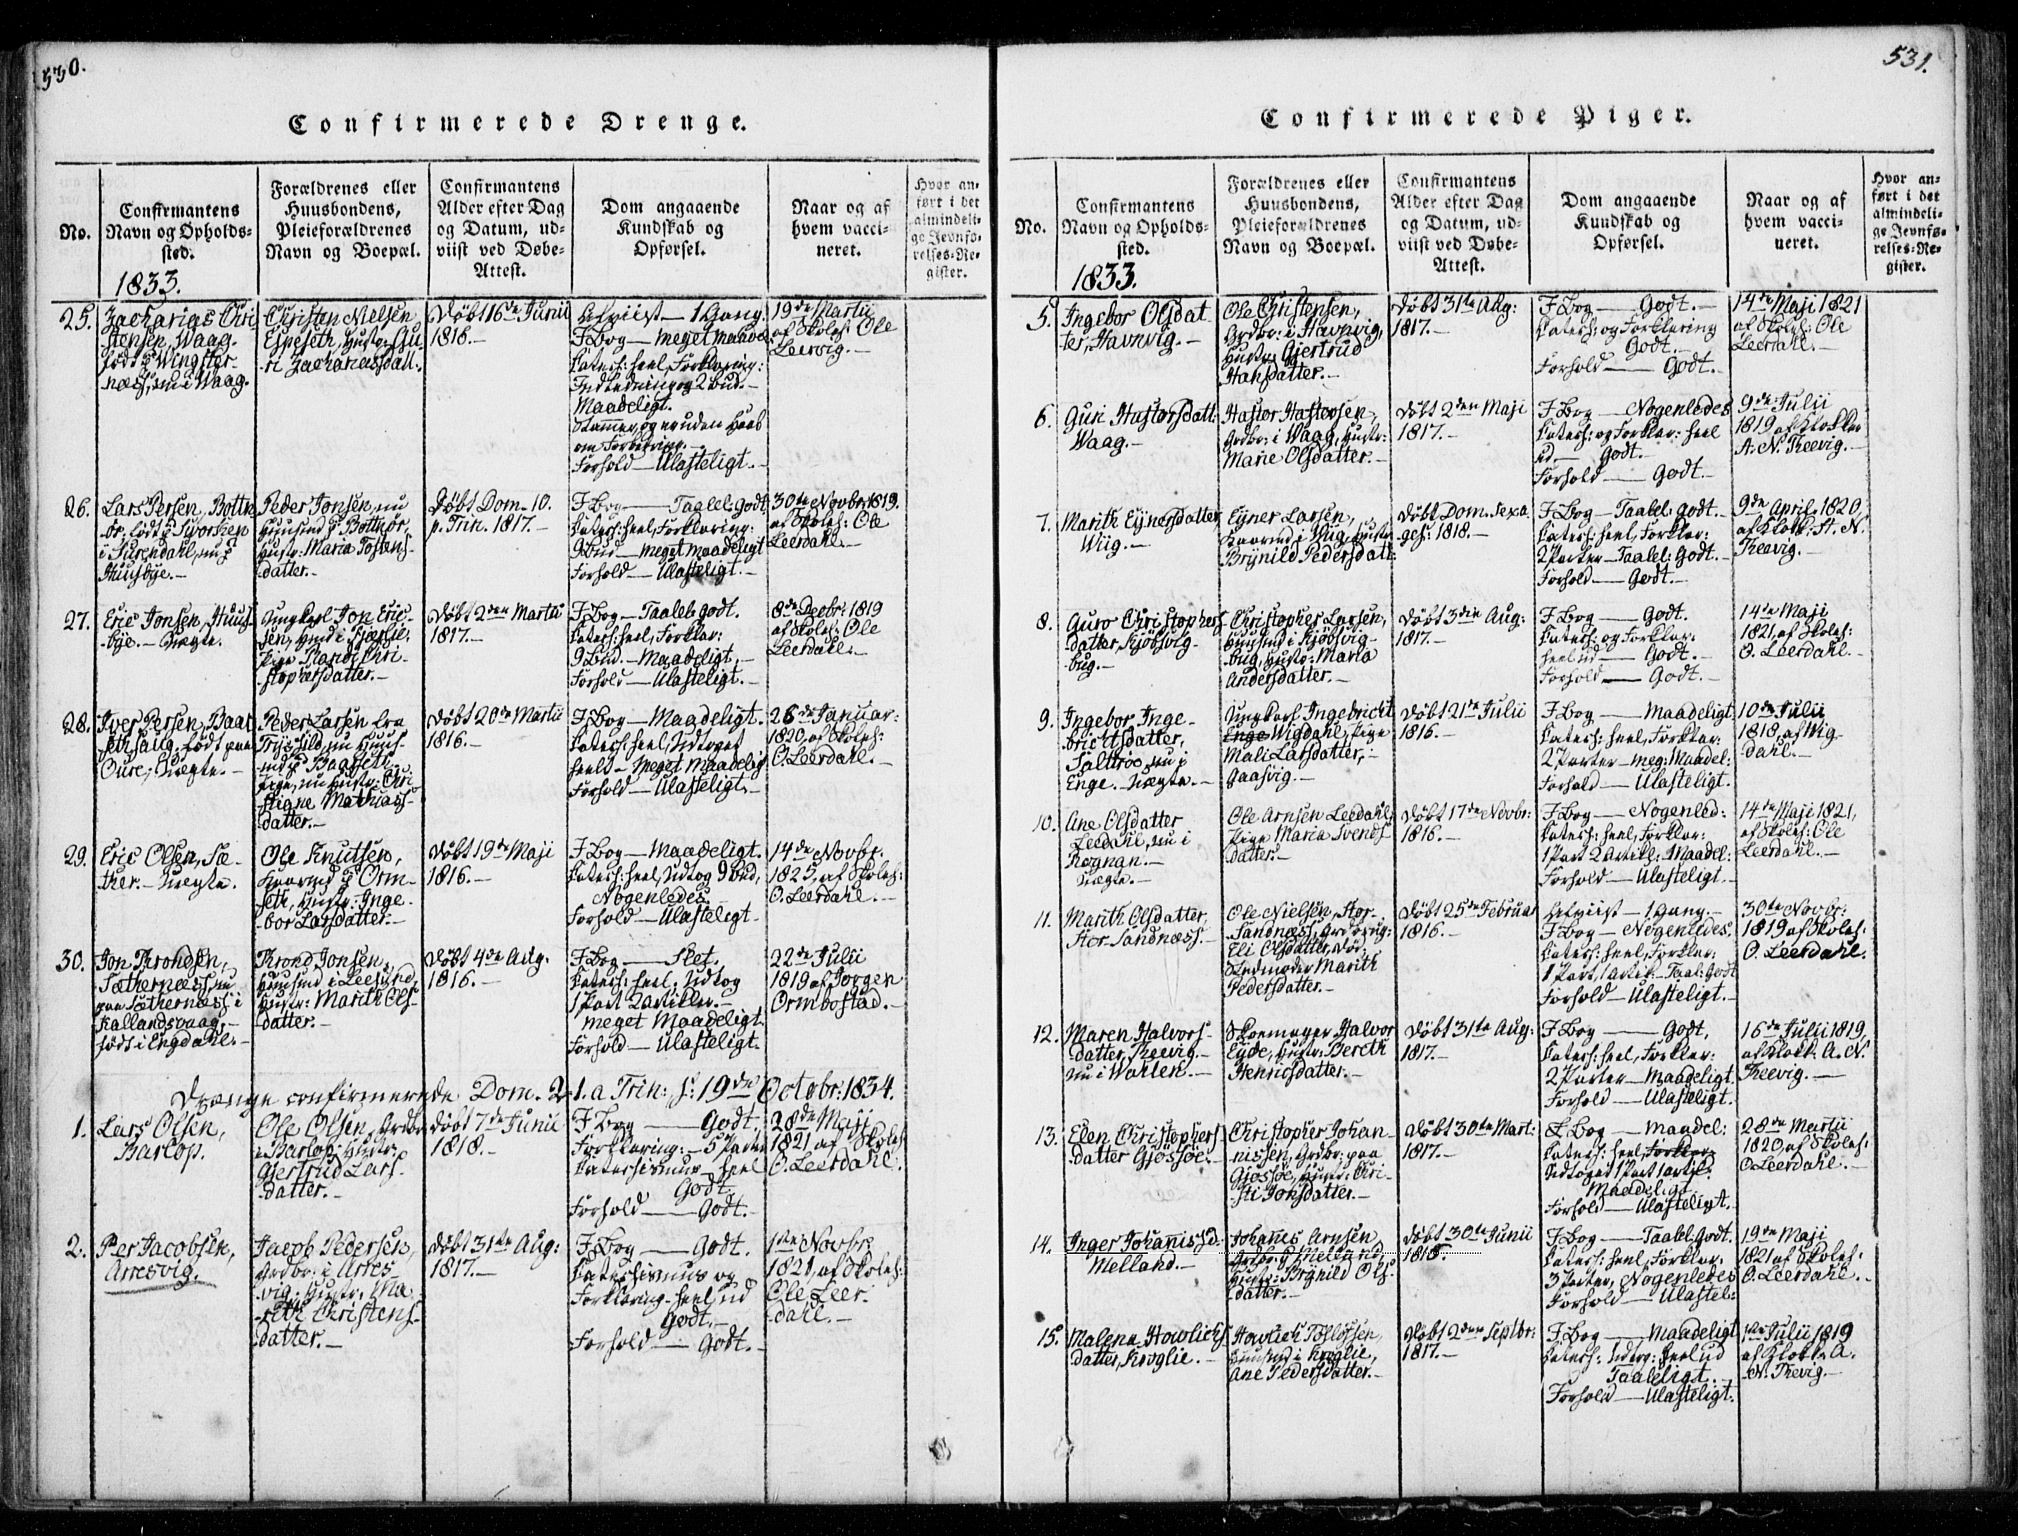 530.
Confirmerede Drenge.
No.
Confirmantens
Navn og Opholds-
sted.
1833.
Forældrenes eller
Huusbondens,
Pleieforældrenes
Navn og Boepæl.
Confirmantens
Alder efter Dag
og Datum, ud-
viist ved Døbe-
Attest.
Dom angaaende
Kundskab og
Opførsel.
Naar og af
hvem vacci-
neret.
Hvor an-
ført i det
almindeli-
ge Jevnfø-
relses-Re-
gister.
25.
Zacharias Chri
stensen, Waag.
født
næss, nu i Waag.
Christen Nielsen
Espeseth, Hustr: Gu-
ri Zachariasdatt:
Døbt 16de Junii
1818.-
Afviist - 1 Gang.
F. Bog - meget maade
Catech: heel, Forklaring:
Indledning og 2 bud.-
Maadeligt.
om Forbedring.-
Forhold - Ulasteligt.-
19de Martii
af Skoleh: Ole
Leervig.-
26.
Lars Persen, Bottn
ør, født
i Surendahl, nu
Huusbye.-
Peder Jonsen, nu
Huusmd Bottnør,
Hustr: Maria Tostens
datter.-
Døbt Dom. 10.
p. Trin. 1817.-
F. Bog - Taalel: Godt
Catech: heel, Forklaring:
9 Bud - meget maadeligt
Forhold - Ulasteligt.-
30te Novbr: 1819.
af Skoleh: Ole
Leerdahl.-
27.
Eric Jonsen, Huus-
bye.- Uægte.
Ungkarl Jon Eric-
sen,
Pige Randi Chri-
stophersdatter.-
Døbt 2den Martii
1817.-
F. Bog - Taalel: Godt.
Catech: heel, Forklar:
9 Bud.- Maadeligt.-
Forhold - Ulasteligt.-
8de Decbr: 1819
af Skoleh: Ole
Leerdahl.-
28.
Iver Persen, Baat
sethaug, født paa
Oure, Uægte.-
Peder Larsen fra
Trysild, nu Huus-
md Baasseth,
Pige, nu Hustr: Chri
stigne Mathiass-
datter.-
Døbt 20de Martii
1816.-
F. Bog - Maadeligt.-
Catech: heel, Udtoget
heelt - Meget Maadelig
Forhold - Ulasteligt.-
26de Januar:
1820, af Skoleh:
O. Leerdahl.-
29.
Eric Olsen, Sæ-
ther.- Uægte.
Ole Knutsen,
Orm-
seth, Hustr: Inge-
bor Larsdatter.-
Døbt 19de Maji
1816.-
F. Bog - Maadeligt.-
Catech: heel, Udtog 9 bud,
Nogenledes.
Forhold - Ulasteligt-
14de Novbr.
1825, af Skoleh:
O. Leerdahl.-
30.
Jon Trondsen,
Sæthernæss, nu
paa Sæthernæss i
Kallandsvaag,-
født i Engdahl.-
Trond Jonsen,
Huusmd i Leesund,
Hustr: Marith Ols
datter.-
Døbt 4de Aug:
1816.-
F. Bog - Slet.-
Catech: heel, Udtog
1 Part 2 Artikler.-
Meget Maadeligt.
Forhold - Ulasteligt.-
22de Julii
1819 af Jørgen
Ormbostad.-
Drenge confirmerede Dom. 21. a Trin: d: 19de Octobr: 1834.
1.
Lars Olsen,
Barlop.
Ole Olsen, Grdbr
i Barlop, Hustr:
Gjertrud Lars-
datter.-
Døbt 7de Junii
1818.-
F. Bog - Godt,
Forklaring: - 5 Parter
Catechismus - heel
Godt.
Forhold - Godt.-
28de Maji
1821 af Skoleh
O. Leerdahl.
2.
Per Jacobsen,
Arresvig.
Jacob Pedersen,
Grdbr: i Arres
vig, Hustr: Ma
reth Christens-
datter.-
Døbt 31te Aug:
1817.-
F. Bog - Godt.
Catechismus og
Forklaring - heel ud
Godt.-
Forhold - Godt.-
1ste Novbr:
1821, af Skoleh:
Ole Leer-
dahl.-
531.
Confirmerede Piger.
No.
Confirmantens
Navn og Opholds-
sted.
1833.
Forældrenes eller
Huusbondens,
Pleieforældrenes
Navn og Boepæl.
Confirmantens
Alder efter Dag
og Datum, ud-
viist ved Døbe-
Attest.
Dom angaaende
Kundskab og
Opførsel.
Naar og af
hvem vacci-
neret.
Hvor an-
ført i det
almindeli-
ge Jevnfø-
relses-Re-
gister.
5.
Ingebor Olsdat-
ter, Havnvig.-
Ole Christensen,
Grdbr: i Havnvig,
Hustr: Gjertrud
Hansdatter.-
Døbt 31te Aug:
1817.-
F. Bog - Godt.-
Catech: og Forklaring
Godt.-
Forhold - Godt.-
14de Maji 1821
af Skoleh: Ole
Leerdahl.-
6.
Guri Hastorsdatt:
Waag.-
Hastor Hastorsen,
Grdbr: i Waag, Hustr:
Marie Olsdatter.-
Døbt 2den Maji
1817.-
F. Bog - Nogenledes
Catech: og Forklar: heel
ud - Godt.-
Forhold - Godt.-
9de Julii
1819 af Klokker
A. N. Trevig.-
7.
Marith Eynersdatter
Wiig.-
Eyner Larsen,
i Wiig, Hustr:
Brynild Pedersdatt:
Døbt Dom. Sexa
ges: 1818.-
F. Bog - Taalel: Godt.-
Catech: heel, Forklar:
2 Parter - Taalel: Godt.-
Forhold - Godt.-
9de April 1820,
af Klokk: A. N.
Trevig.-
8.
Guro Christophers
datter, Kjøbsvig-
bug.-
Christopher Larsen,
Huusmd i Kjøbsvig-
bug, Hustr: Maria
Andersdatter.-
Døbt 3die Aug:
1817.-
F. Bog - Godt.
Catech: og Forklar:
heel ud - Godt.-
Forhold - Godt.-
14de Maji
1821, af Skoleh:
O. Leerdahl.-
9.
Ingebor Inge-
brichtsdatter,
Saltrøe, nu i
Enge. Uægte.-
Ungkarl Ingebricht
Enge Wigdahl, Pige
Mali Larsdatter,-
Gaasvig.-
Døbt 21de Julii
1816.-
F. Bog - Maadeligt.
Catech: heel, Forklar:
2 Parter - meg: Maadel:
Forhold - Ulasteligt.
10de Julii
1818, af Wig-
dahl.-
10.
Ane Olsdatter
Leedahl, nu i
Rognan.-
Uægte.-
Ole Arnsen Leedahl,
Pige Maria Svends
datter.-
Døbt 17de Novbr:
1816.-
F. Bog - Nogenled:
Catech: heel, Forklar:
1 Part 2 Artikl: Maadel:
Forhold - Ulasteligt.-
14de Maji 1821,
af Skoleh: Ole
Leerdahl.-
11.
Marith Olsdatter,
Stor-Sandnæss.-
Ole Nielsen, Stor-
Sandnæss,
Eli Olsdatter,
Stedmoder Marith
Pedersdatter.-
Døbt 25de Februar
1816.-
Afviist - 1 Gang.-
F. Bog - Nogenledes.
Catech: heel, Forklar:
1 Part, 1 Artik: - Taal: Godt
Forhold - Ulasteligt.-
30te Novbr:
1819 af Skoleh:
O. Leerdahl.
12.
Maren Halvors-
datter, Trevig.-
nu i
Skoemager Halvor
Eyde, Hustr: Bereth
Henricsdatter.-
Døbt 31te Aug:
1817.-
F. Bog - Godt,
Catech: heel, Forklar:
2 Parter - Maadeligt.
Forhold - Ulasteligt.
16de Julii 1819,
af Klokk: A. N.
Trevig.-
13.
Elen Christophers
datter Gjøssøe.-
Christopher Johan-
nissen, Grdbr: paa
Gjøssøe, Hustr: Chri-
sti Jonsdatter.-
Døbt 30te Mart:
1817.-
F. Bog - Maadel:
Catech: heel, Forklar:
Udtoget 1 Part 1 Artik:
Maadeligt.
Forhold - Ulasteligt.
28de Martii
1820, af Skoleh:
O. Leerdahl.-
14.
Inger Johanisd:
Melland.-
Johanis Arnsen
Grdbr: Melland,
Hustr: Brynild Ols-
datter.-
Døbt 30te Junii
F. Bog - Taalel: Godt.
Catech: heel, Forklar:
3 Parter, Nogenledes
Forhold - Ulastel:
19de Maji
1821 af Skoleh:
O. Leerdahl.-
15.
Malena Howlichs
datter, Kroglie.-
Howlich Toslofsen,
Huusmd i Kroglie,
Ane Pedersdatter.-
Døbt 2den Septbr:
1817.-
F. Bog - Maadeligt
Catech: Udtog: heel ud
Taaleligt.-
Forhold - Ulasteligt.
1ste Julii 1819
af Klokk: A.
N. Trevig.-